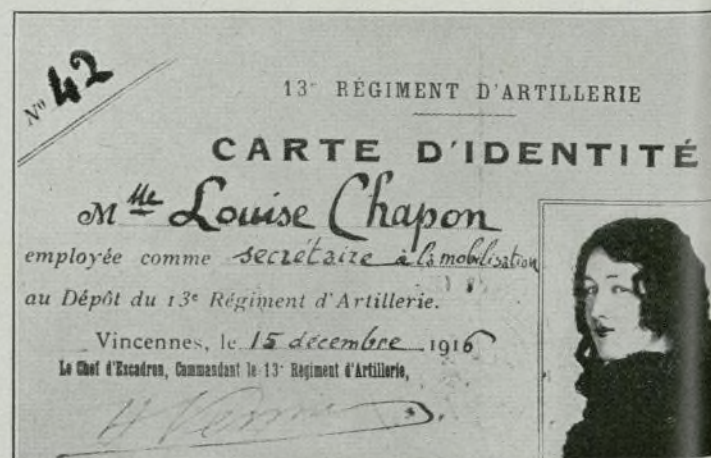 Nº 42
13ᵉ RÉGIMENT D'ARTILLERIE
CARTE D'IDENTITÉ
Mlle Louise Chapon
employée comme secrétaire à la mobilisation
au Dépôt du 13ᵉ Régiment d'Artillerie.
Vincennes, le 15 décembre 1916
Le Chef d'Escadron, Commandant le 13ᵉ Régiment d'Artillerie,